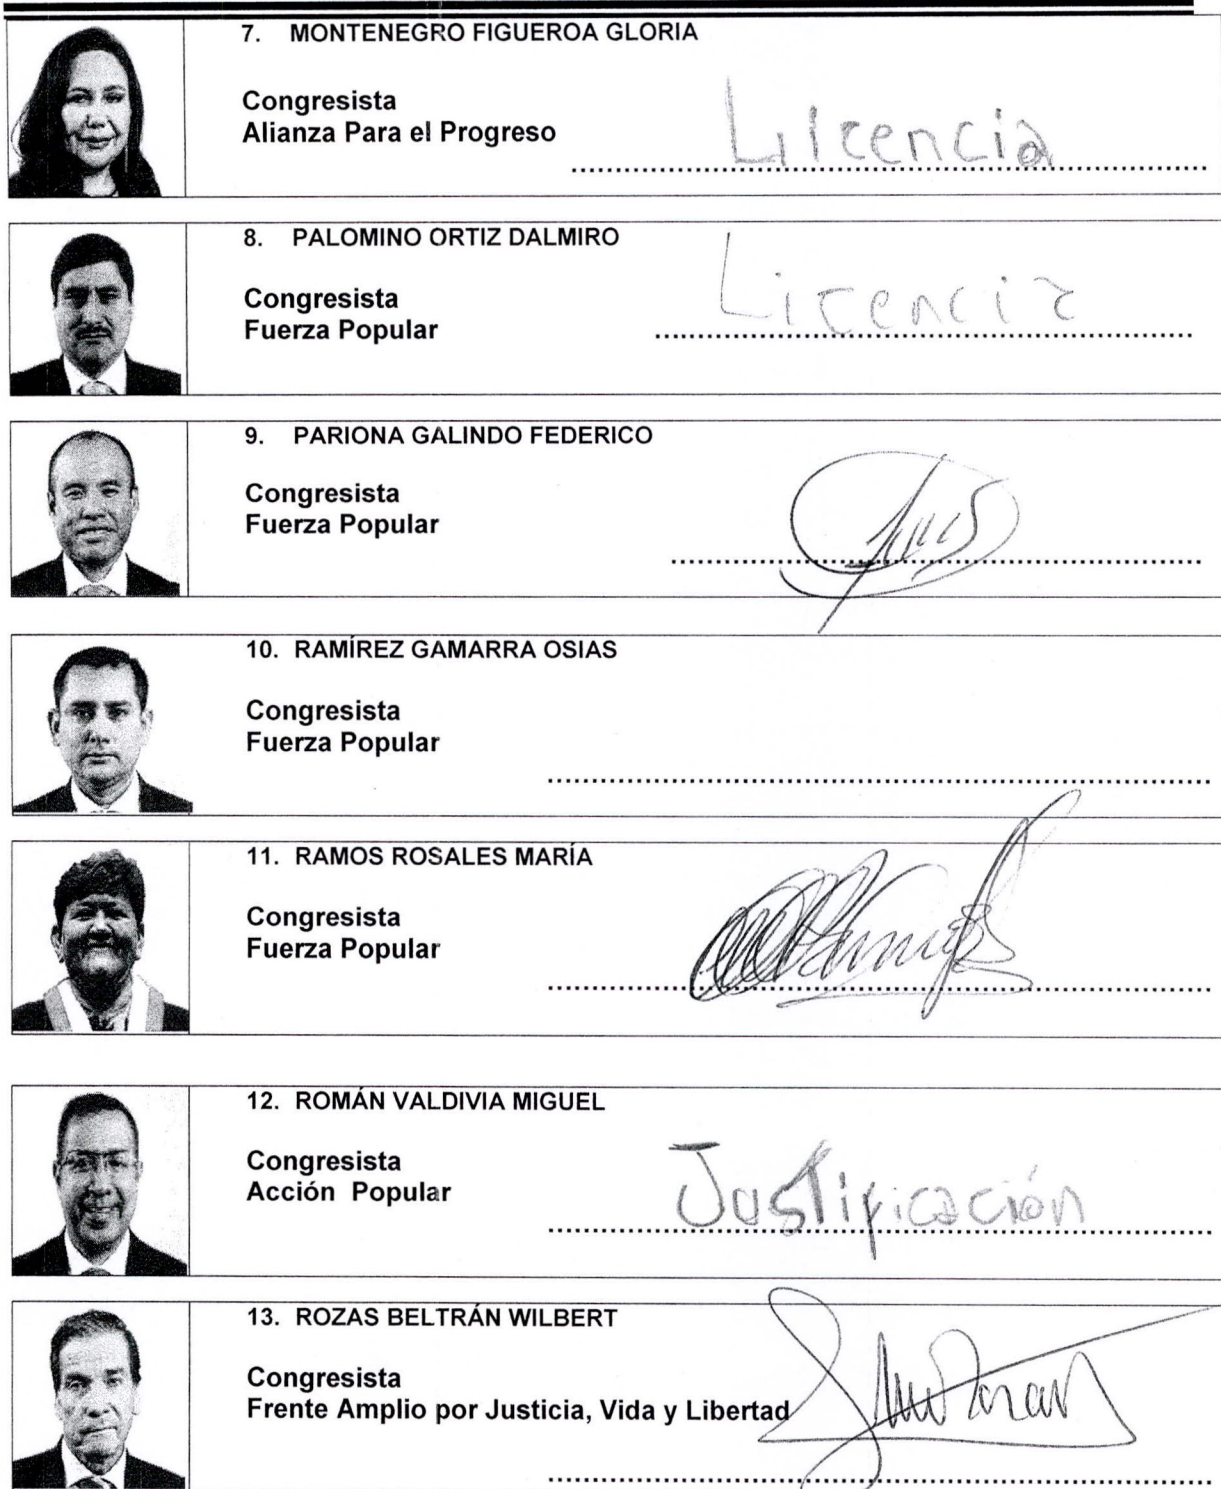 7. MONTENEGRO FIGUEROA GLORIA
Congresista
Alianza Para el Progreso
Licencia
8. PALOMINO ORTIZ DALMIRO
Congresista
Fuerza Popular
Licencia
9. PARIONA GALINDO FEDERICO
Congresista
Fuerza Popular
10. RAMÍREZ GAMARRA OSIAS
Congresista
Fuerza Popular
11. RAMOS ROSALES MARÍA
Congresista
Fuerza Popular
12. ROMÁN VALDIVIA MIGUEL
Congresista
Acción Popular
Justificación
13. ROZAS BELTRÁN WILBERT
Congresista
Frente Amplio por Justicia, Vida y Libertad